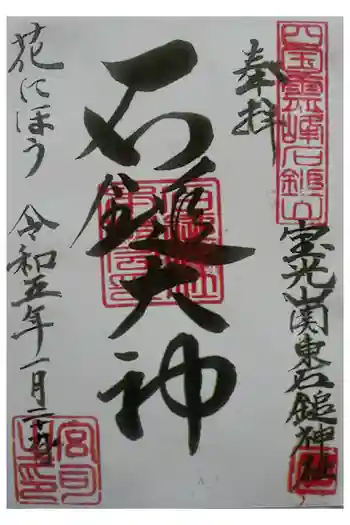 四國靈峰石鎚山
奉拝
宝光山関東石鎚神社
石鎚大神
花にほう 令和五年一月
宮司之印